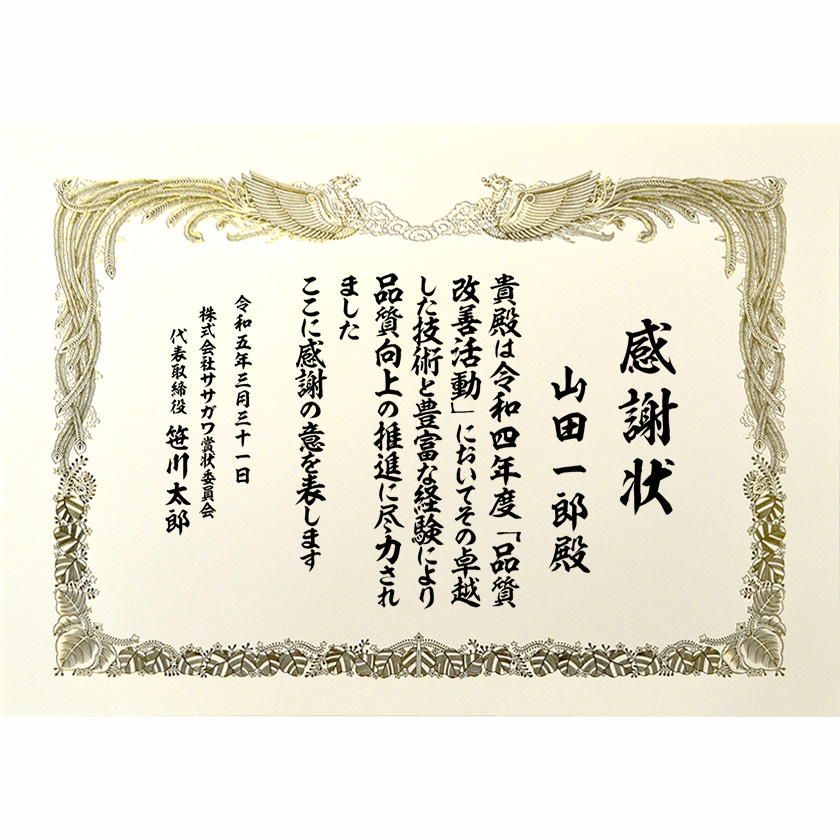 感謝状
山田一郎殿
貴殿は令和四年度「品質
改善活動」においてその卓越
した技術と豊富な経験により
品質向上の推進に尽力され
ました
ここに感謝の意を表します
令和五年三月三十一日
株式会社ササガワ賞状委員会
代表取締役 笹川太郎